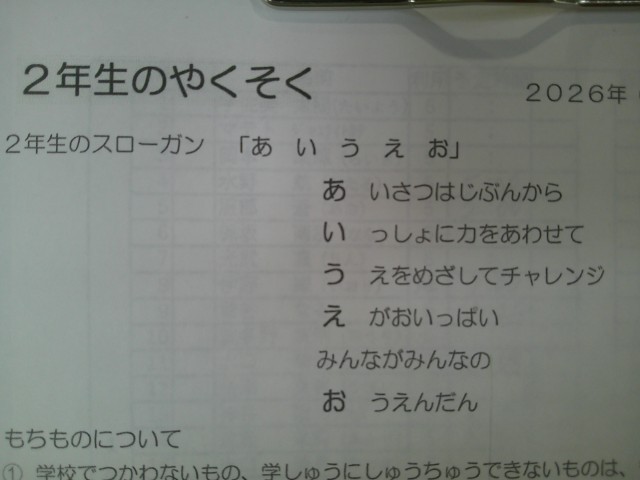 2年生のやくそく
2026年
2年生のスローガン 「あ い う え お」
あ いさつはじぶんから
い っしょに力をあわせて
う えをめざしてチャレンジ
え がおいっぱい
みんながみんなの
お うえんだん
もちものについて
① 学校でつかわないもの、学しゅうにしゅうちゅうできないものは、